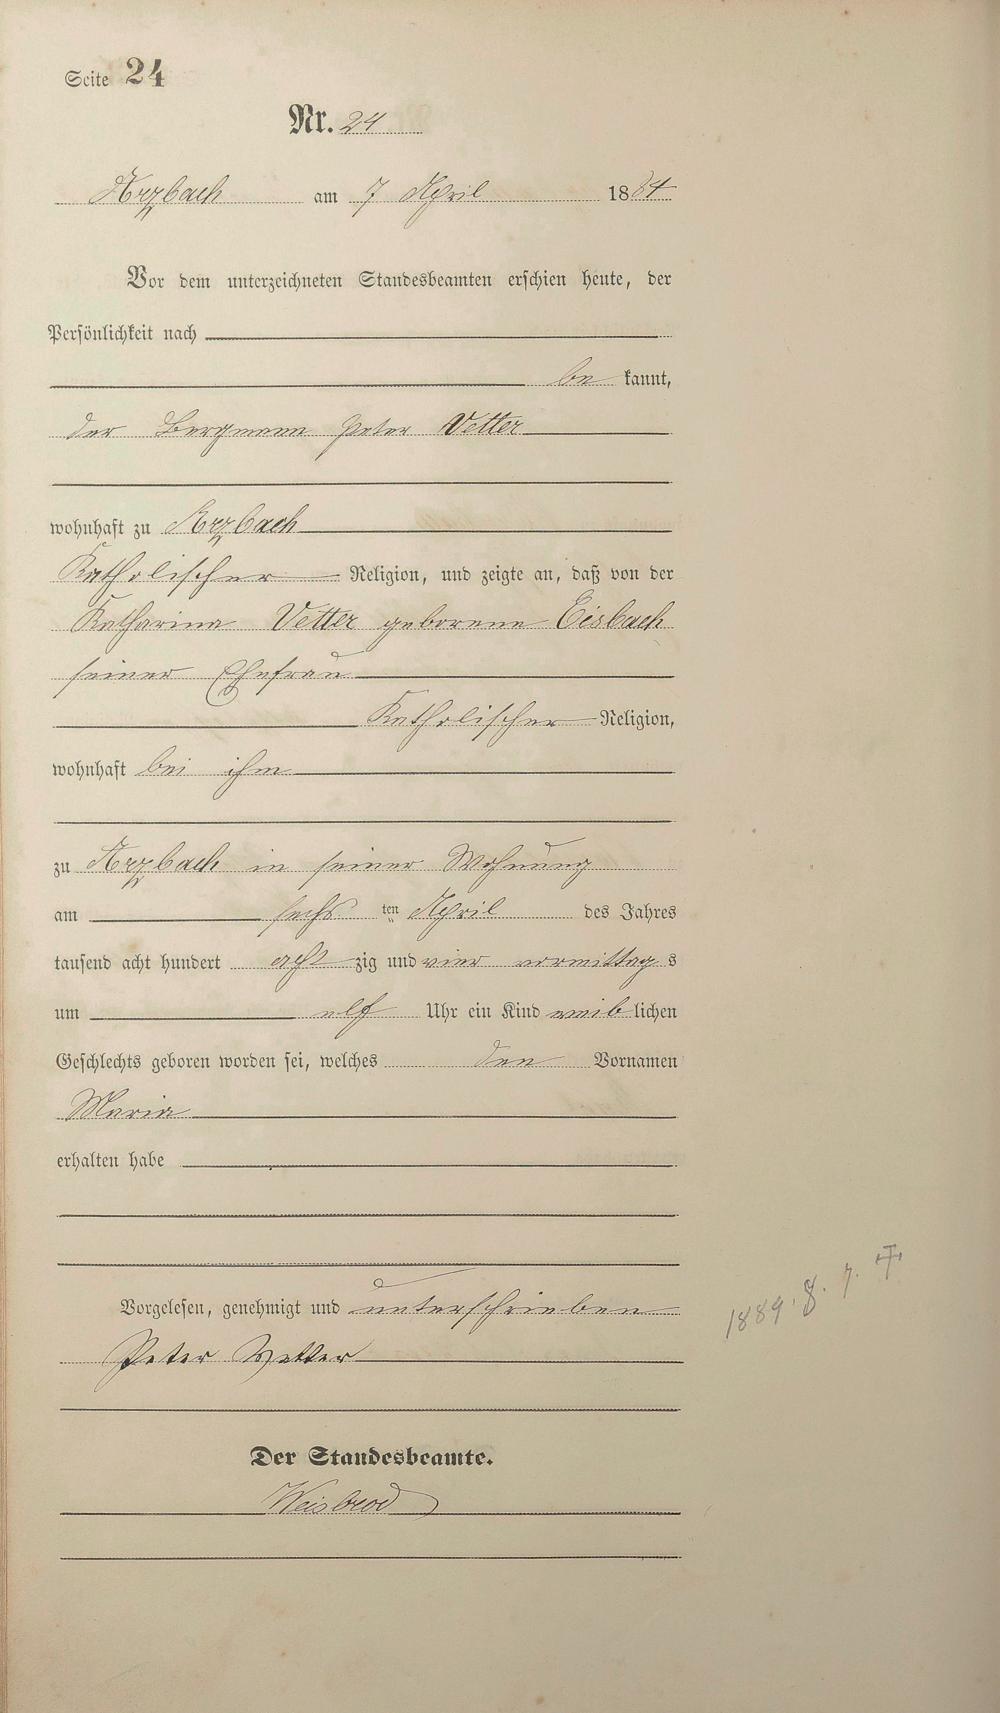 Seite 24
Nr. 24
Arzbach am 7 April 1884
Vor dem unterzeichneten Standesbeamten erschien heute, der
Persönlichkeit nach
be kannt,
der Bergmann Peter Vetter
wohnhaft zu Arzbach
Katholischer Religion, und zeigte an, daß von der
Katharina Vetter geborene Eisbach
seiner Ehefrau
Katholischer Religion,
wohnhaft bei ihm
zu Arzbach in seiner Wohnung
am sechs ten April des Jahres
tausend acht hundert acht zig und vier vormittag s
um elf Uhr ein Kind weib lichen
Geschlechts geboren worden sei, welches den Vornamen
Maria
erhalten habe
Vorgelesen, genehmigt und unterschrieben
1889. 8. 7. ✝
Peter Vetter
Der Standesbeamte.
Weisbrod